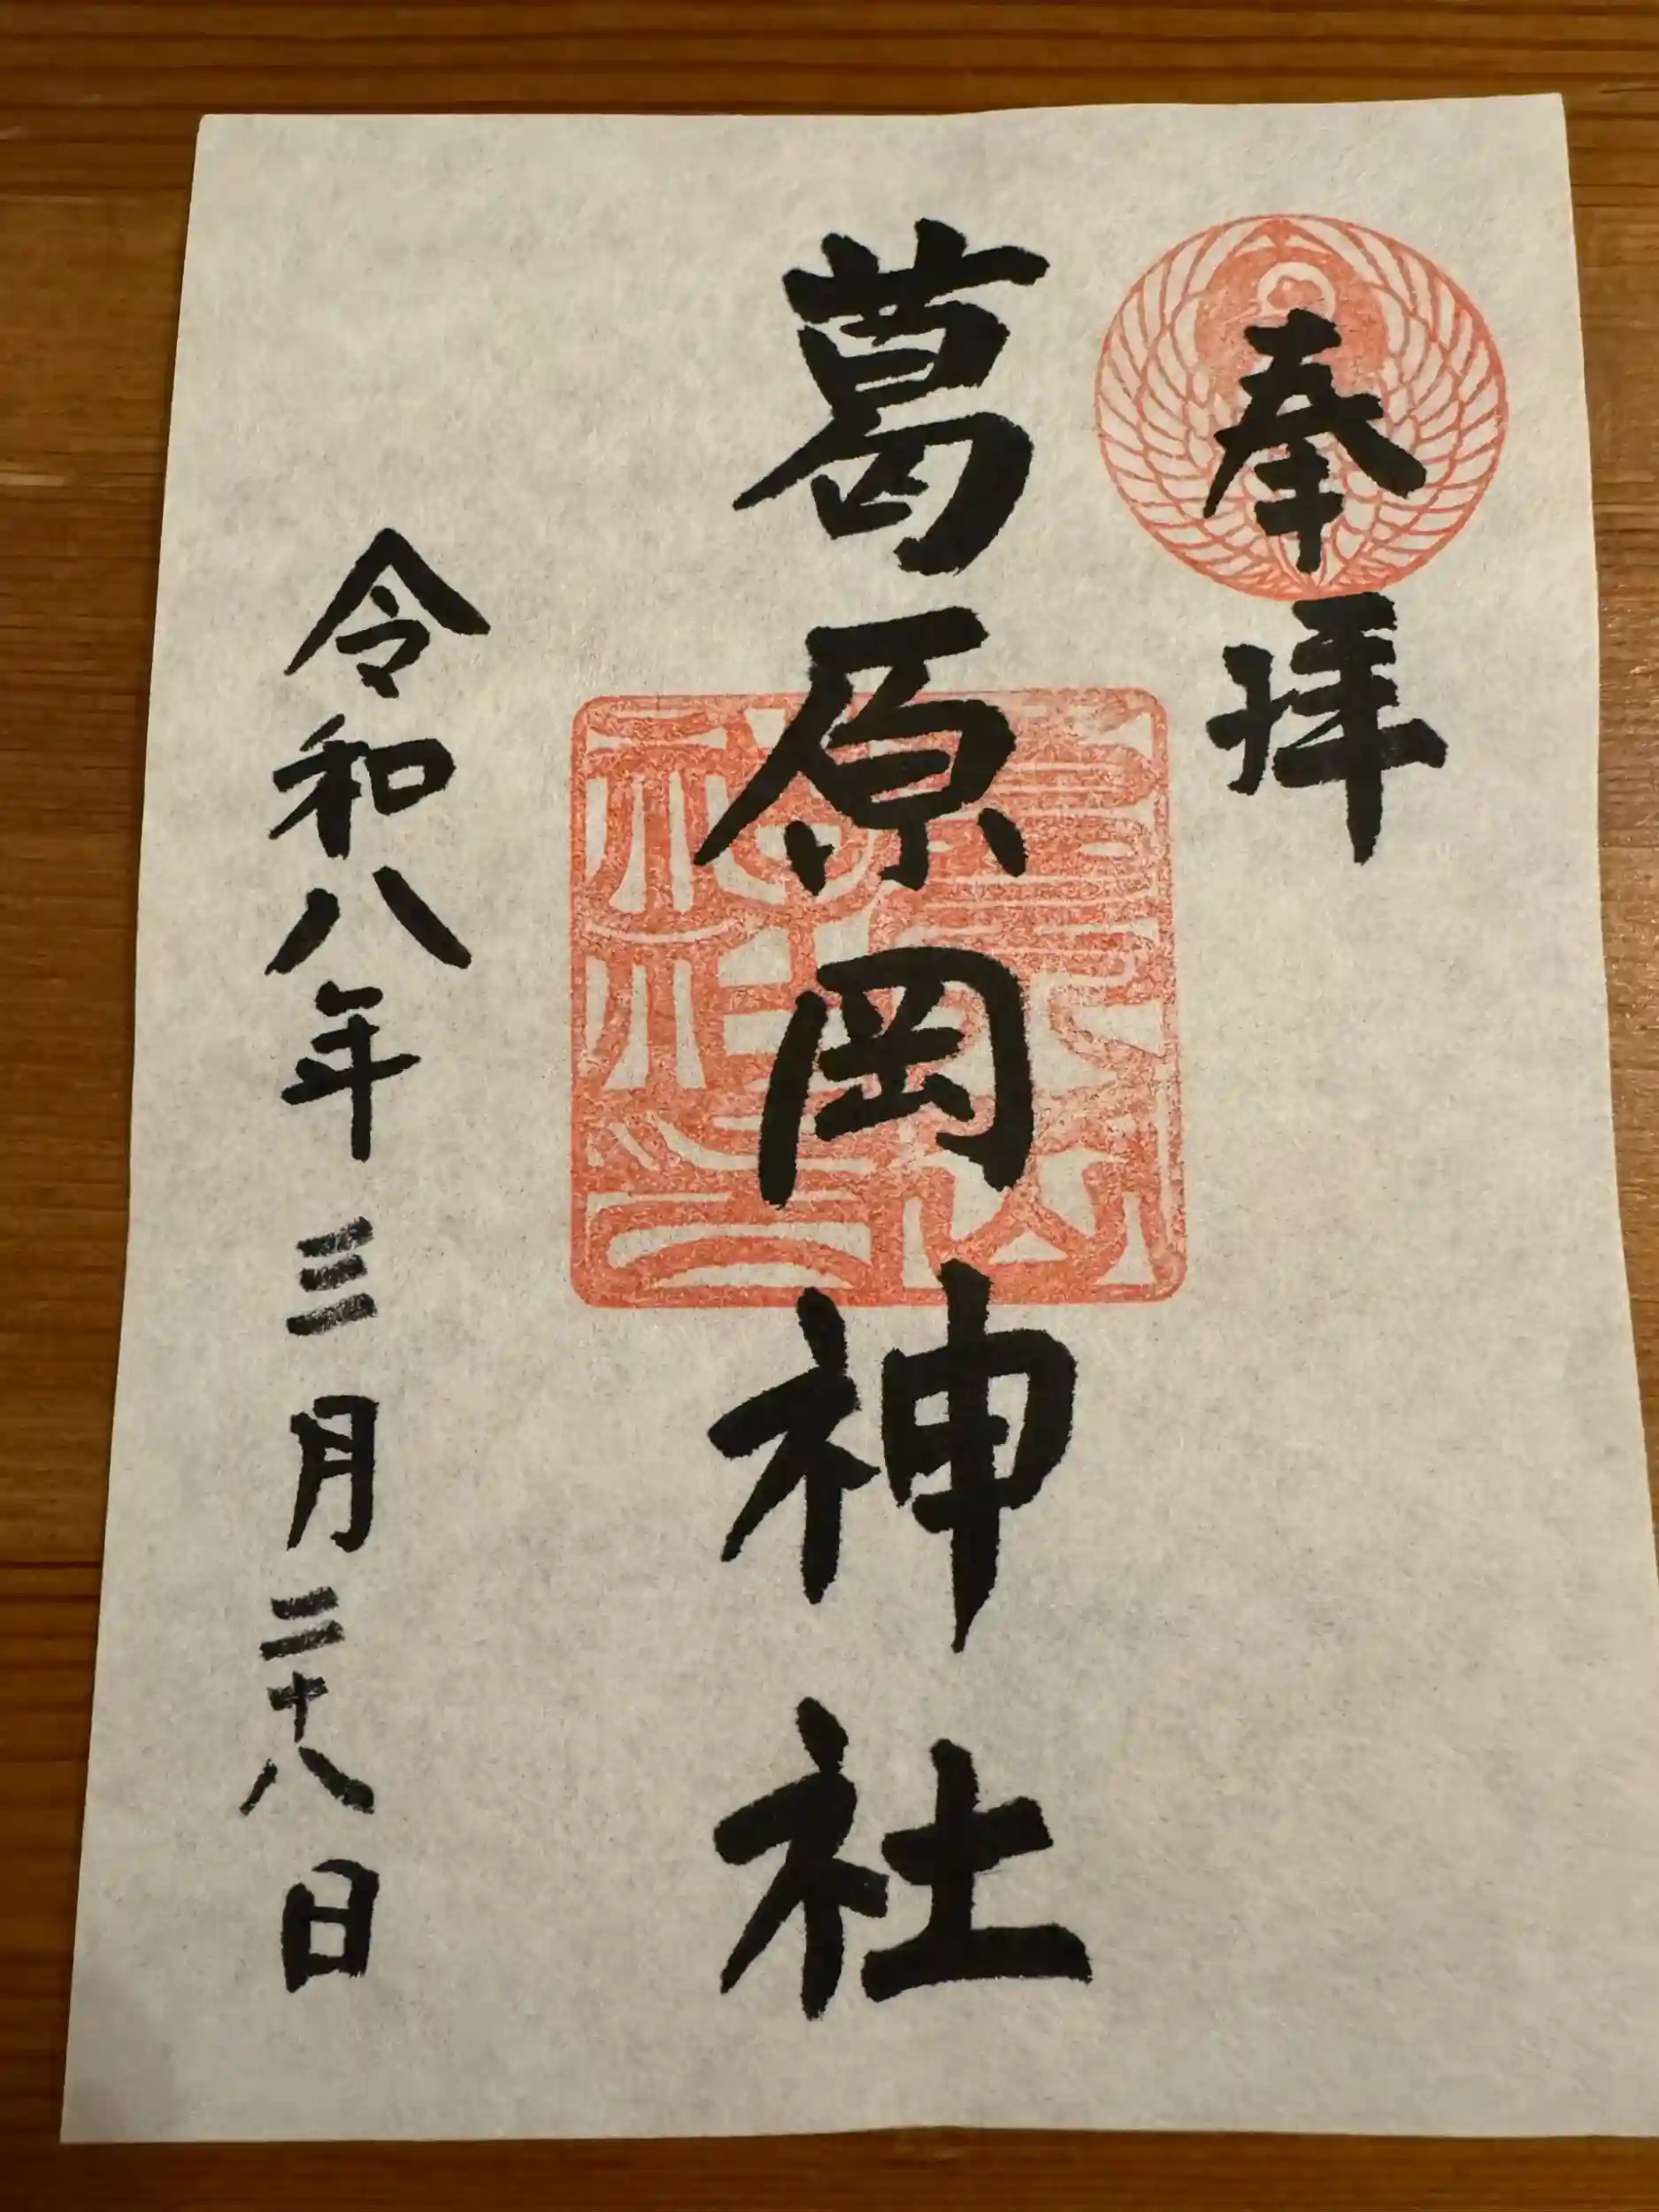 奉拝
葛原岡神社
令和八年三月二十八日